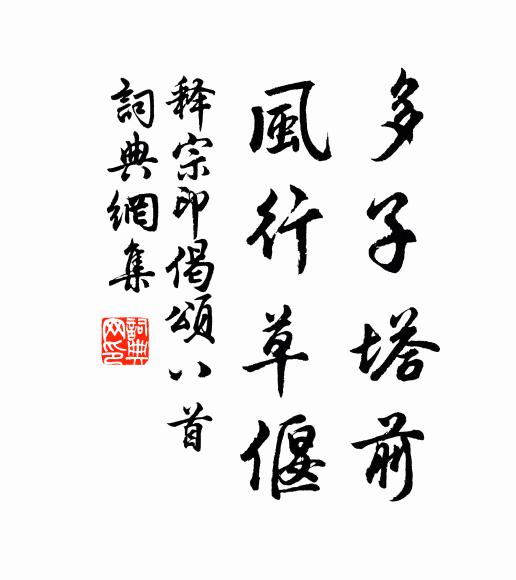 多子塔前
風行草偃
释宗印偈頌八首
詞典網集
詞典
网印